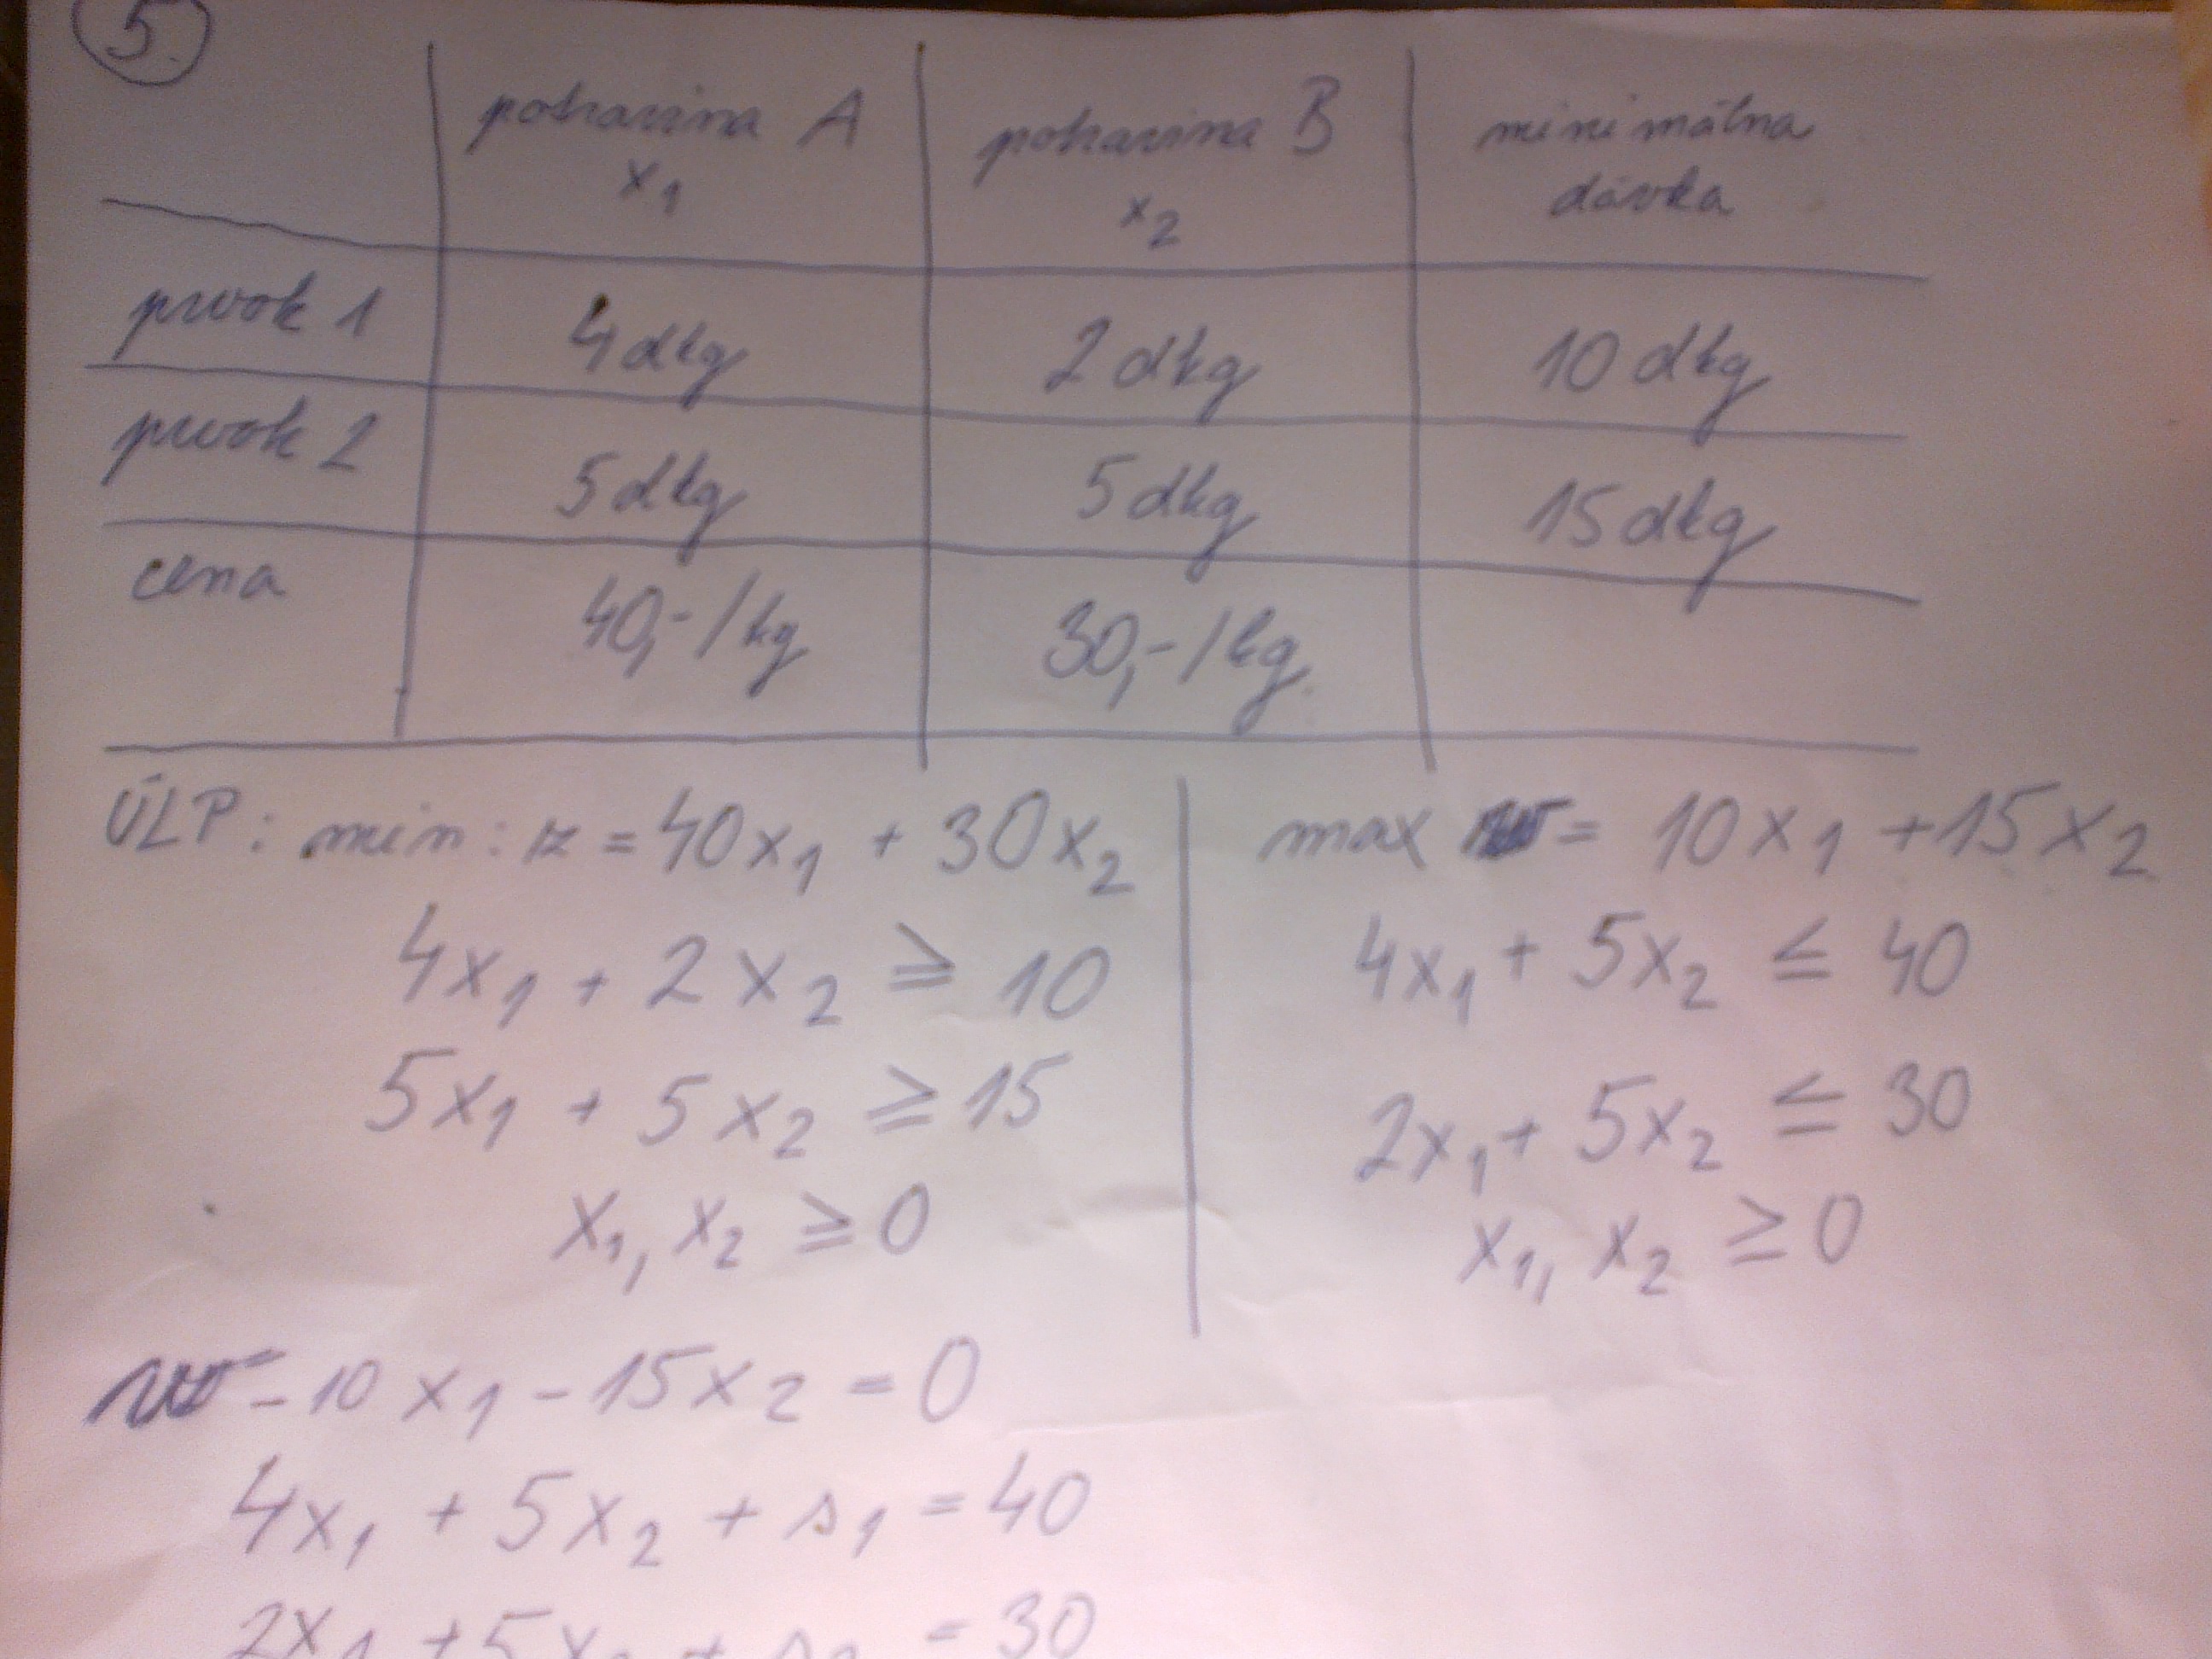 5.
potravina A potravina B minimálna
x₁ x₂ dávka
prvok 1 4dkg 2dkg 10dkg
prvok 2 5dkg 5dkg 15dkg
cena 40,-/kg 30,-/kg
ÚLP: min: z = 40x₁ + 30x₂
4x₁ + 2x₂ ≥ 10
5x₁ + 5x₂ ≥ 15
x₁, x₂ ≥ 0
max w = 10x₁ + 15x₂
4x₁ + 5x₂ ≤ 40
2x₁ + 5x₂ ≤ 30
x₁, x₂ ≥ 0
w - 10x₁ - 15x₂ = 0
4x₁ + 5x₂ + s₁ = 40
2x₁ + 5x₂ + s₂ = 30